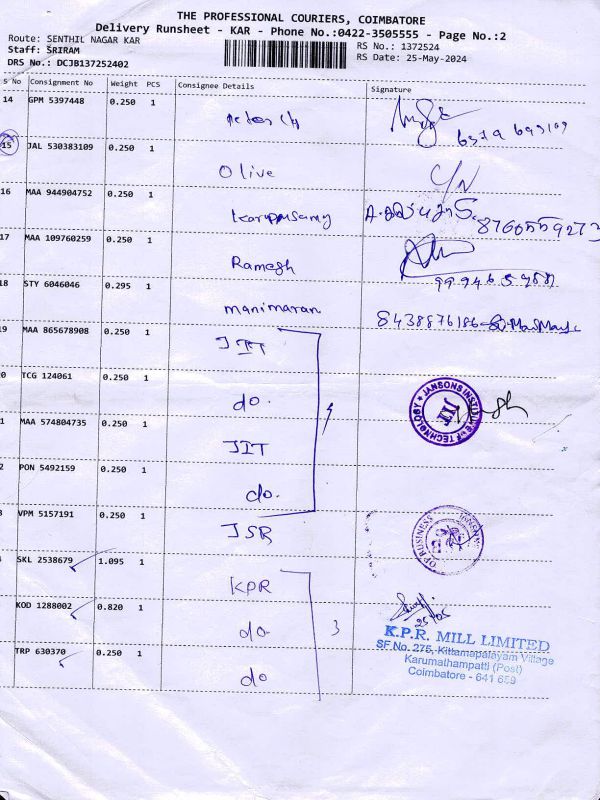 THE PROFESSIONAL COURIERS, COIMBATORE
Delivery Runsheet - KAR - Phone No.:0422-3505555 - Page No.:2
Route: SENTHIL NAGAR KAR
RS No.: 1372524
Staff: SRIRAM
RS Date: 25-May-2024
DRS No.: DCJB137252402
S No Consignment No Weight PCS Consignee Details Signature
14 GPM 5397448 0.250 1
15 JAL 530383109 0.250 1 Olive
16 MAA 944904752 0.250 1 Karuppusamy 8760559273
17 MAA 109760259 0.250 1 Ramesh
18 STY 6046046 0.295 1 manimaran 8438876186
9 MAA 865678908 0.250 1 JIT
0 TCG 124061 0.250 1 do.
JANSONS INSTITUTE OF TECHNOLOGY JIT
1 MAA 574804735 0.250 1 JIT
2 PON 5492159 0.250 1 do.
VPM 5157191 0.250 1 JSB
OF BUSINESS
SKL 2538679 1.095 1 KPR
KOD 1288002 0.820 1 do 3
25/05
K.P.R. MILL LIMITED
SF No. 275, Kittampalayam Village
Karumathampatti (Post)
Coimbatore - 641 659
TRP 630370 0.250 1 do